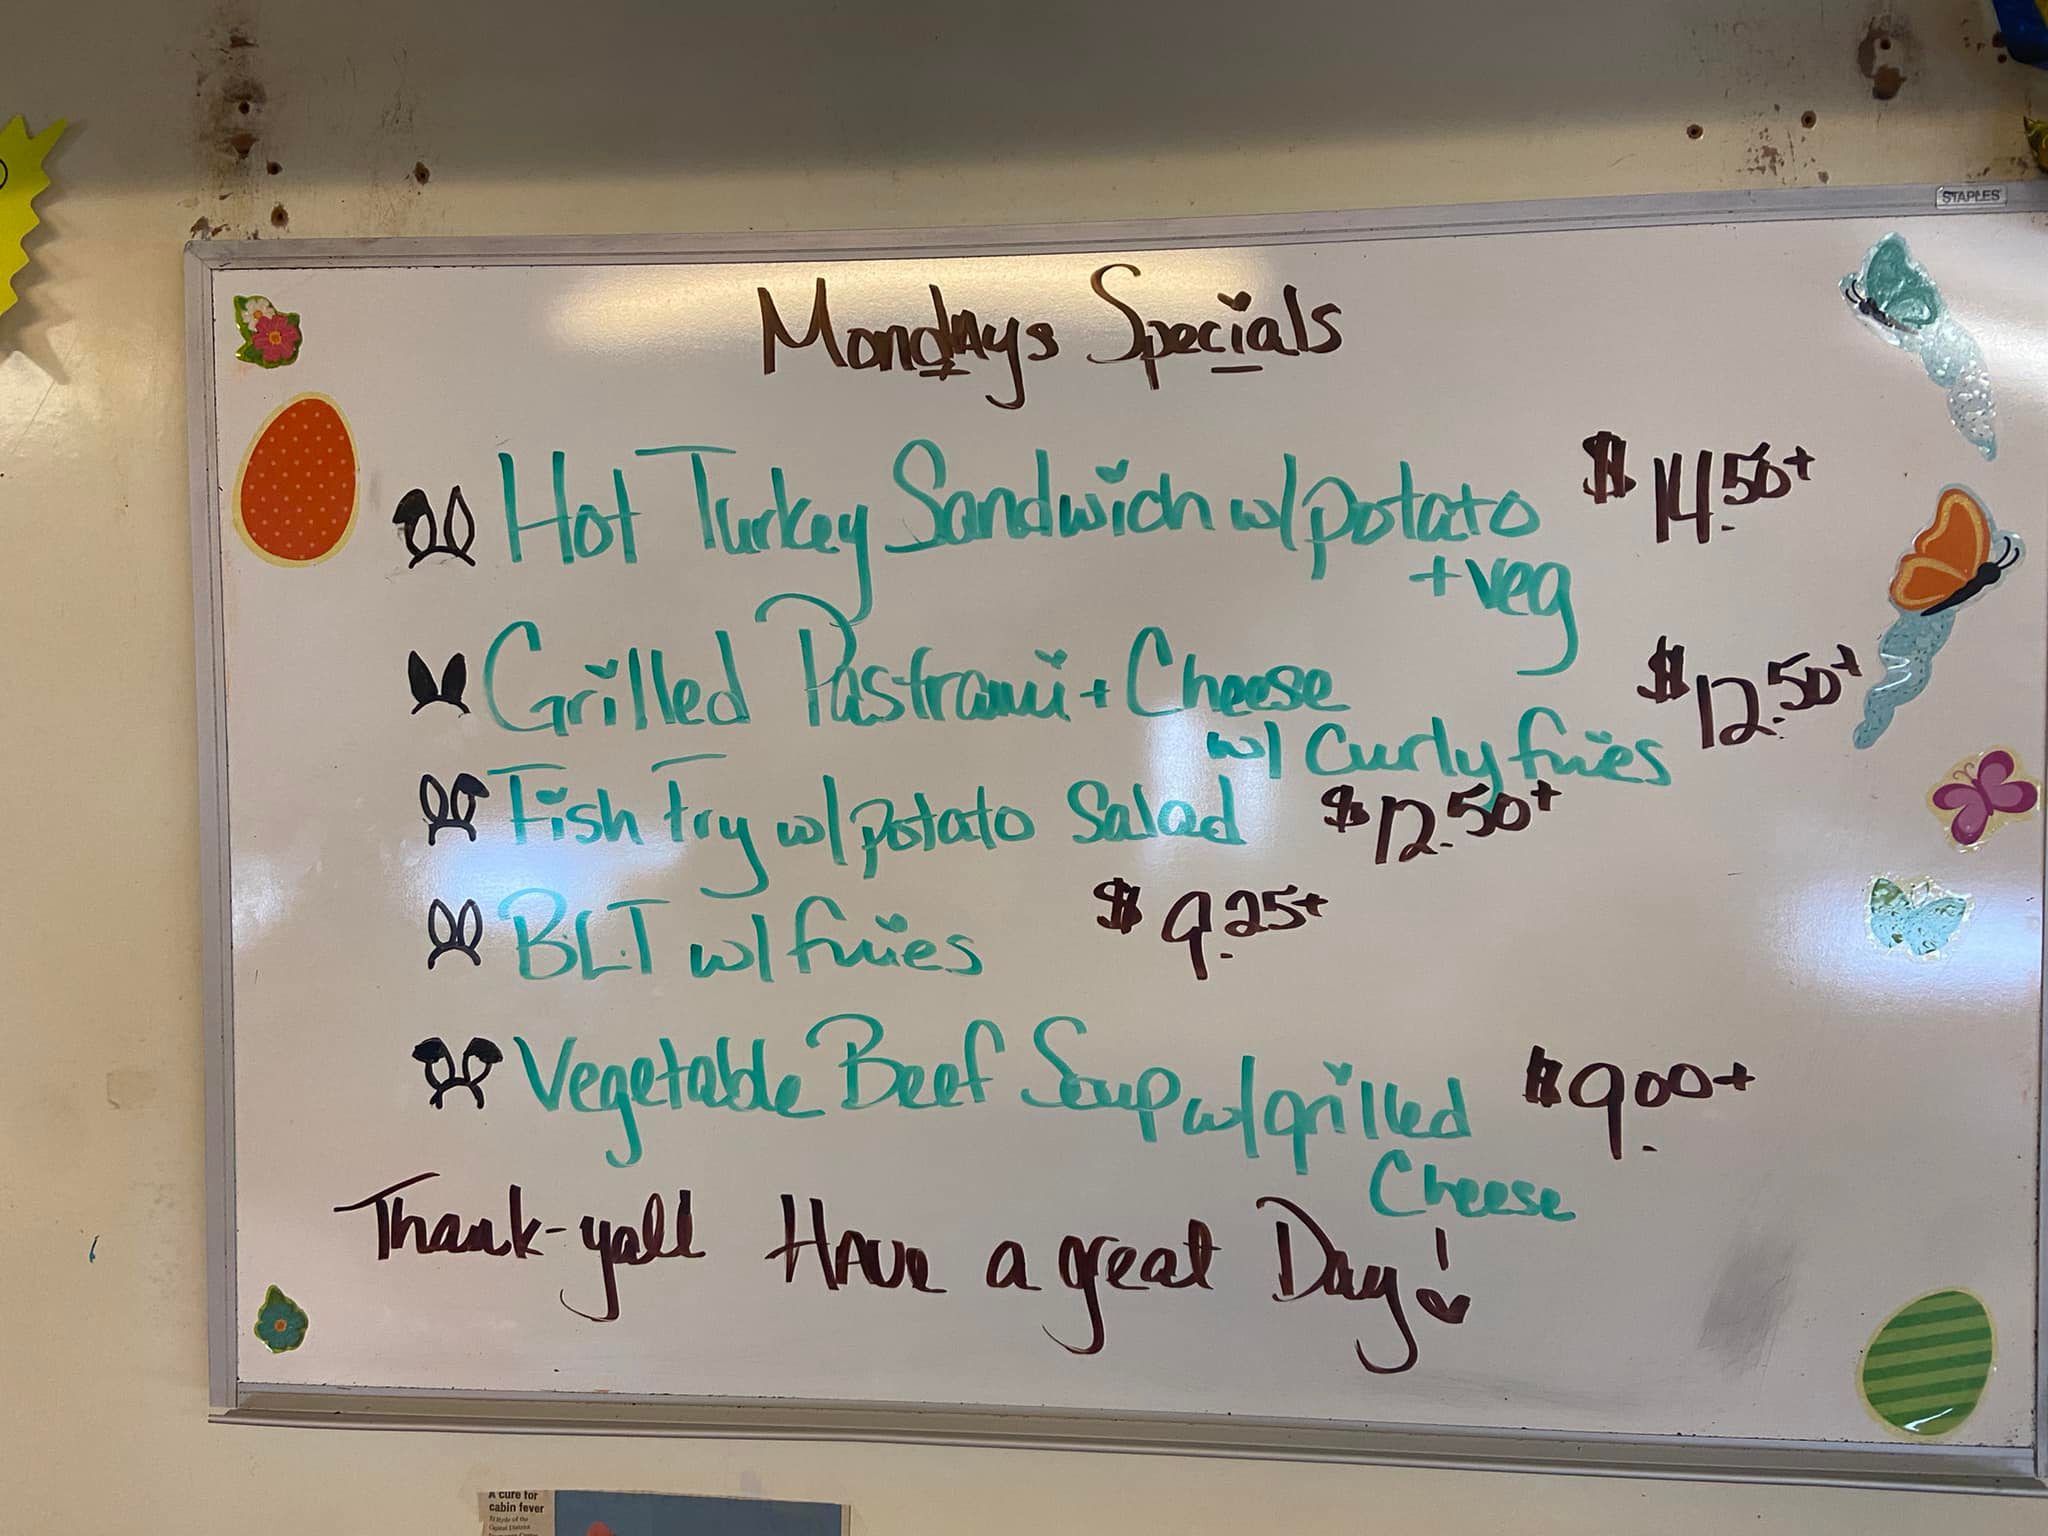 STAPLES
Mondays Specials
Hot Turkey Sandwich w/potato $14.50+
+veg
Grilled Pastrami + Cheese $12.50+
w/ Curly fries
Fish Fry w/potato Salad $12.50+
BLT w/fries $9.25+
Vegetable Beef Soup w/grilled $9.00+
Cheese
Thank-yall Have a great Day!
A cure for
cabin fever